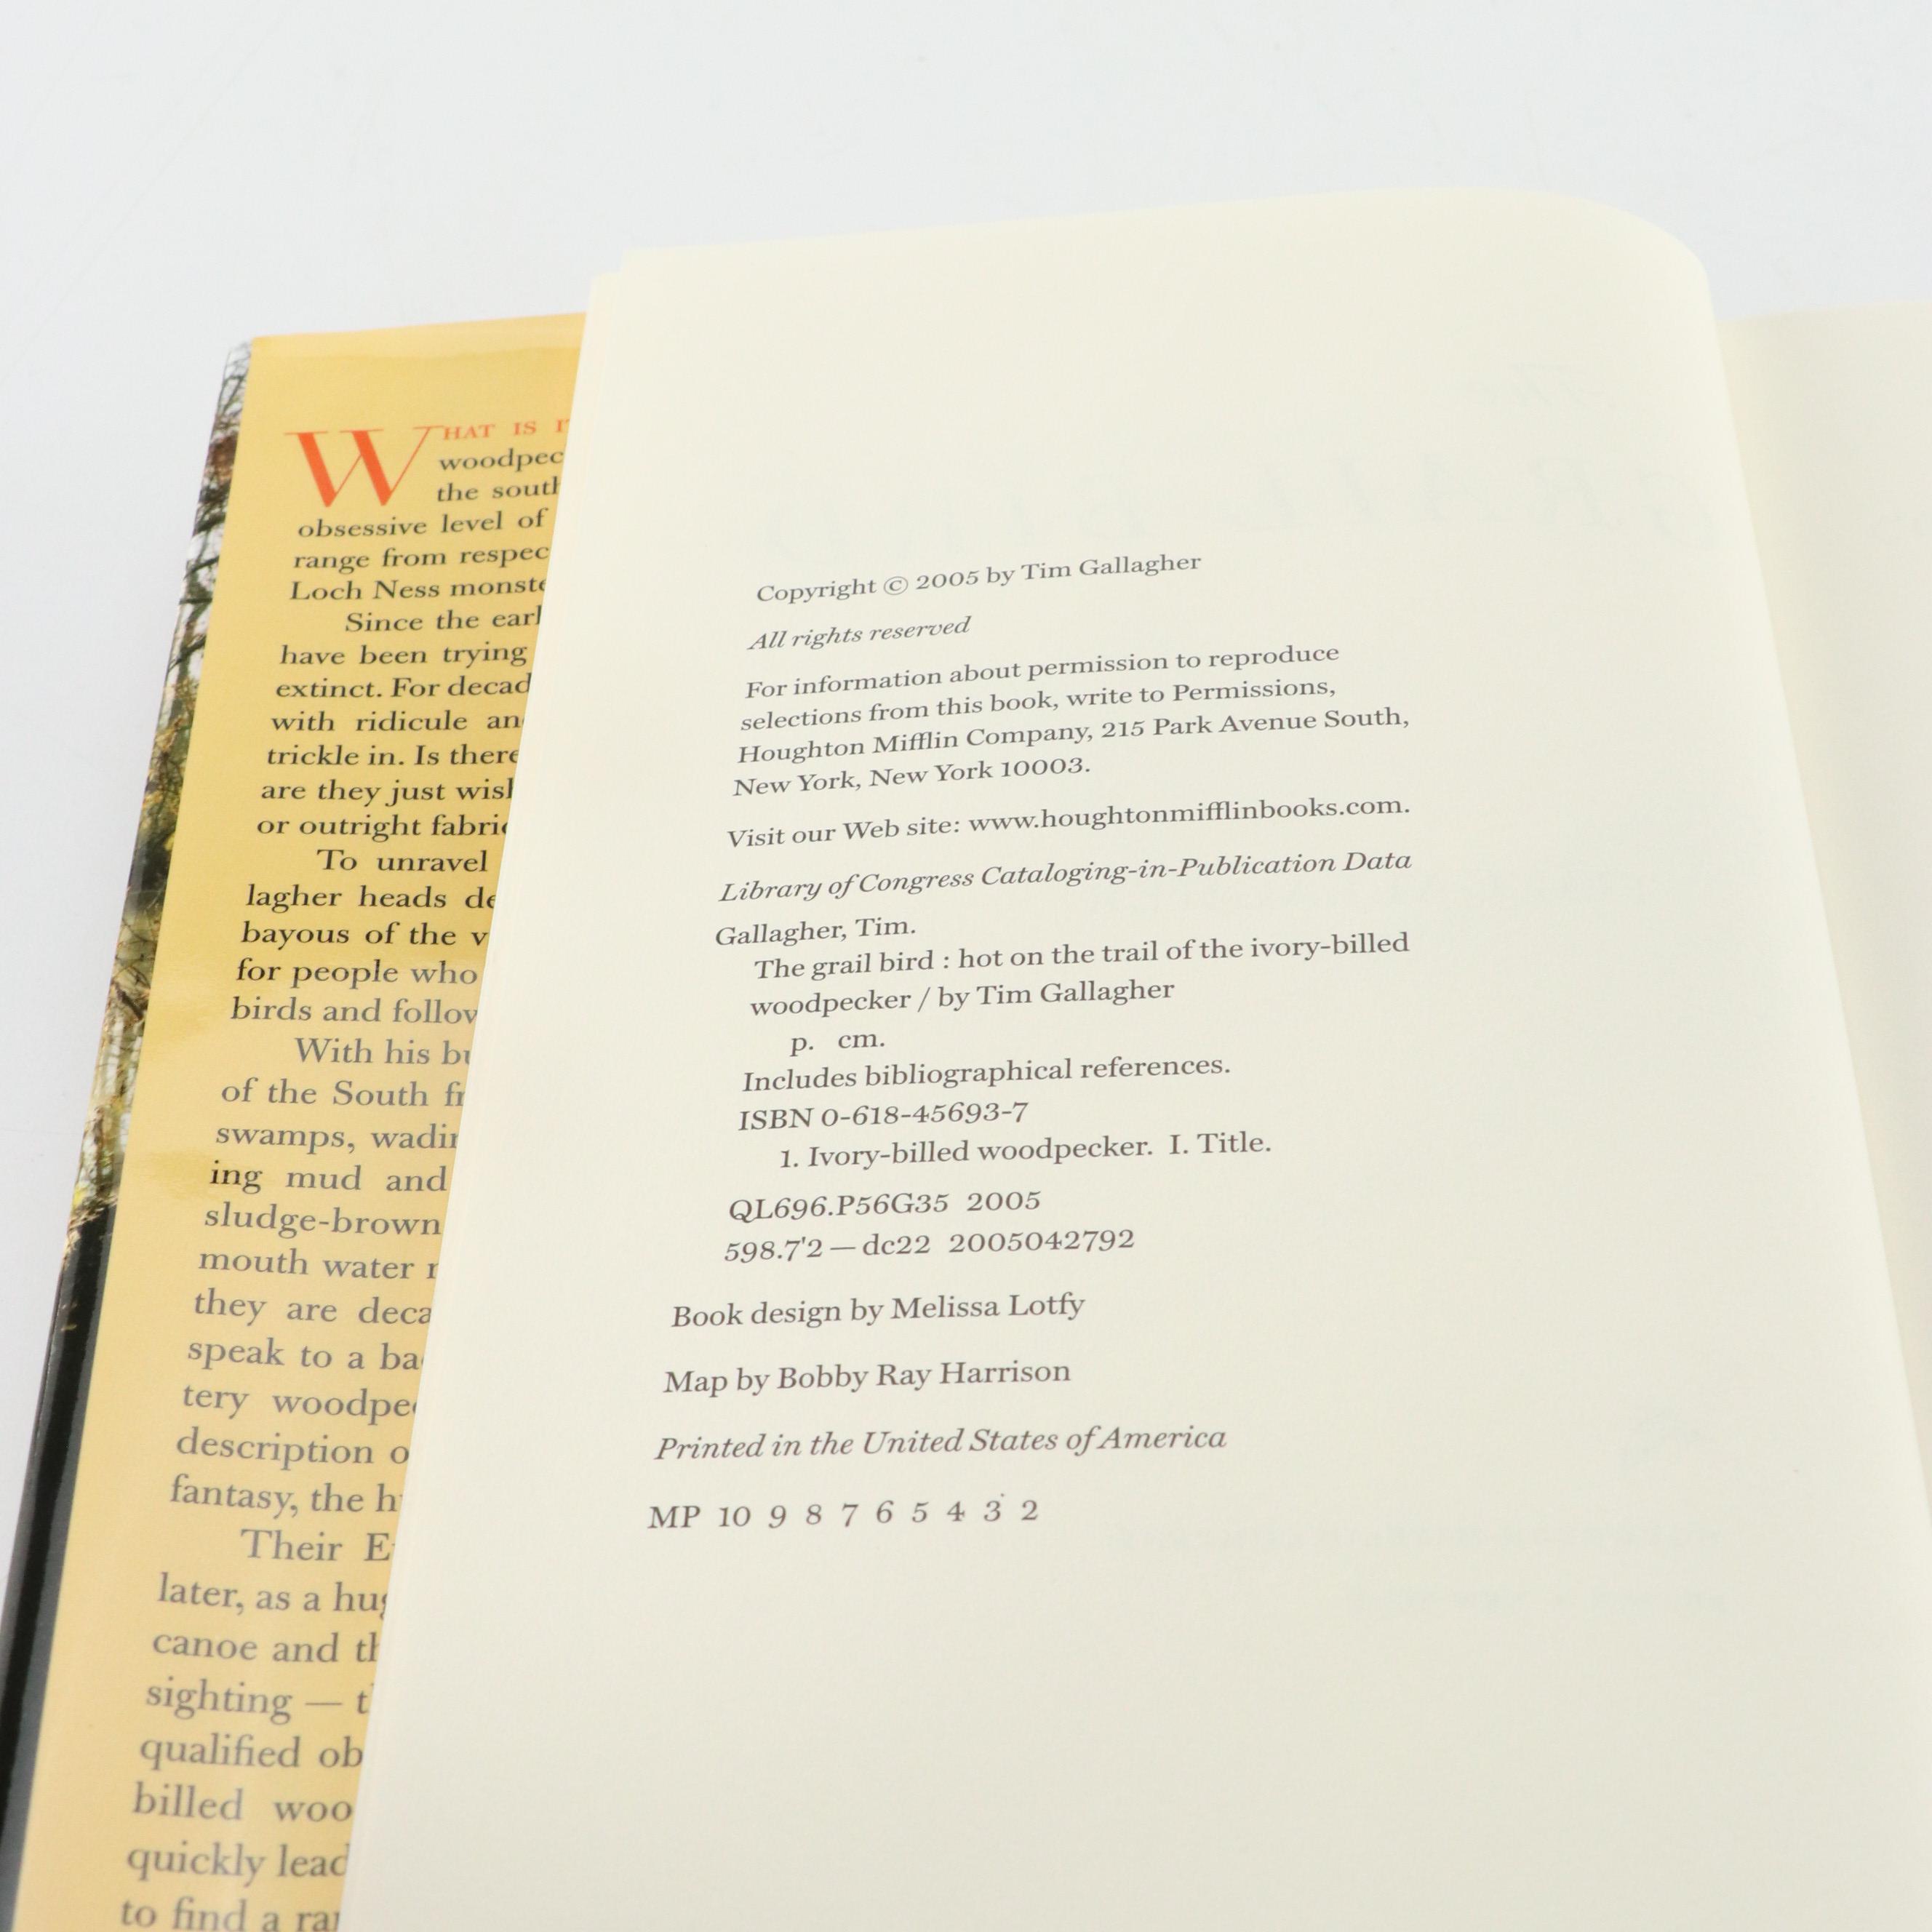 WHAT IS
woodpec
the sout
obsessive level of
range from respec
Loch Ness monste
Since the earl
have been trying
extinct. For decad
with ridicule an
trickle in. Is there
are they just wis
or outright fabri
To unravel
lagher heads de
bayous of the v
for people who
birds and follow
With his bu
of the South fr
swamps, wadin
ing mud and
sludge-brown
mouth water
they are deca
speak to a ba
tery woodpe
description o
fantasy, the h
Their E
later, as a hug
canoe and th
sighting — t
qualified ob
billed woo
quickly lead
to find a ra
Copyright © 2005 by Tim Gallagher
All rights reserved
For information about permission to reproduce
selections from this book, write to Permissions,
Houghton Mifflin Company, 215 Park Avenue South,
New York, New York 10003.
Visit our Web site: www.houghtonmifflinbooks.com.
Library of Congress Cataloging-in-Publication Data
Gallagher, Tim.
The grail bird : hot on the trail of the ivory-billed
woodpecker / by Tim Gallagher
p. cm.
Includes bibliographical references.
ISBN 0-618-45693-7
1. Ivory-billed woodpecker. I. Title.
QL696.P56G35 2005
598.7'2 — dc22 2005042792
Book design by Melissa Lotfy
Map by Bobby Ray Harrison
Printed in the United States of America
MP 10 9 8 7 6 5 4 3 2